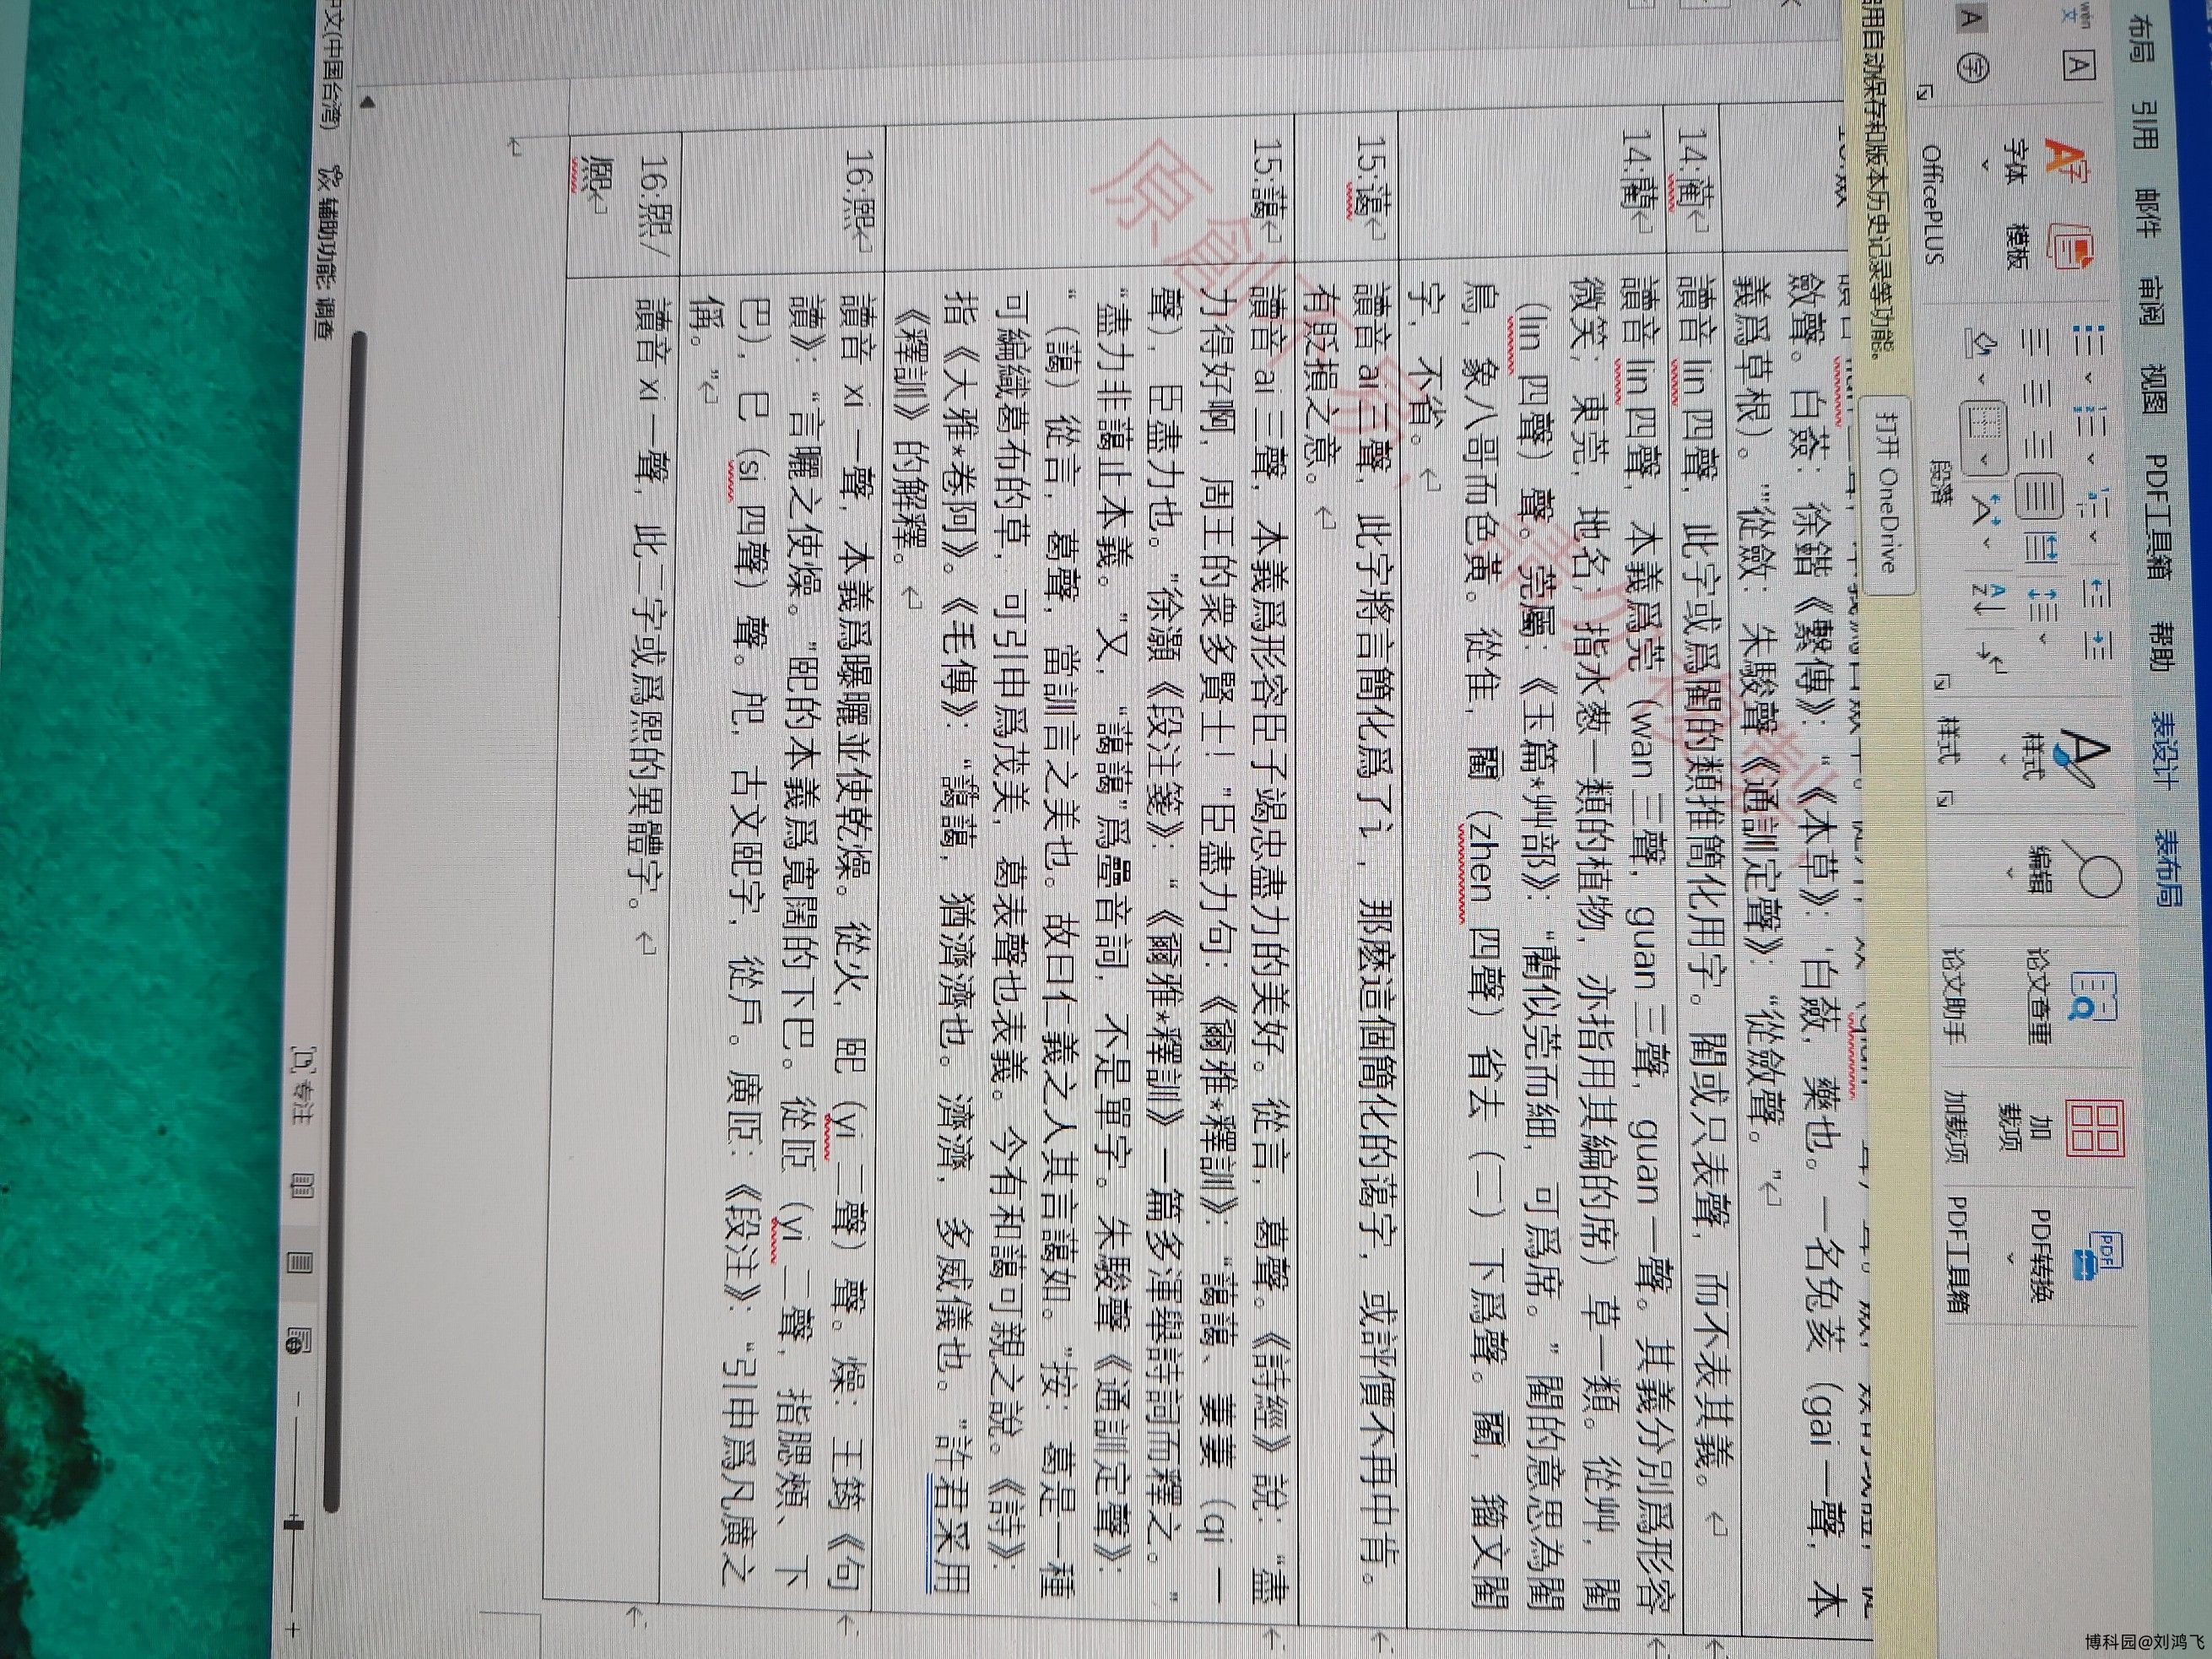 布局 引用 邮件 审阅 视图 PDF工具箱 帮助 表设计 表布局
wén
文 A
A 字
字体 模板
OfficePLUS
段落
样式
样式
编辑
论文查重
论文助手
加载项
加载项
PDF转换
PDF工具箱
用自动保存和版本历史记录等功能。 打开 OneDrive
斂聲。白蘞：徐鍇《繫傳》：“《本草》：‘白蘞，藥也。一名兔荄（gai 一聲，本
義爲草根）。’”從斂：朱駿聲《通訓定聲》：“從斂聲。”
14:蔺 讀音 lin 四聲，此字或爲閵的類推簡化用字。閵或只表聲，而不表其義。
14:藺 讀音 lin 四聲，本義爲莞（wan 三聲，guan 三聲，guan 一聲。其義分別爲形容
微笑；東莞，地名；指水葱一類的植物，亦指用其編的席）草一類。從艸，閵
（lin 四聲）聲。莞屬：《玉篇*艸部》：“藺似莞而細，可爲席。”閵的意思為閵
鳥，象八哥而色黃。從隹，䦞（zhen 四聲）省去（二）下爲聲。䦞，籀文閵
字，不省。
15:蔼 讀音 ai 三聲，此字將言簡化爲了讠，那麽這個簡化的蔼字，或評價不再中肯。
有貶損之意。
15:藹 讀音 ai 三聲，本義爲形容臣子竭忠盡力的美好。從言，葛聲。《詩經》說：“盡
力得好啊，周王的衆多賢士！”臣盡力句：《爾雅*釋訓》：“藹藹、萋萋（qi 一
聲），臣盡力也。”徐灝《段注箋》：“《爾雅*釋訓》一篇多渾舉詩詞而釋之。”
“盡力非藹止本義。”又，“藹藹”爲疊音詞，不是單字。朱駿聲《通訓定聲》：
“（藹）從言，葛聲，當訓言之美也。故曰仁義之人其言藹如。”按：葛是一種
可編織葛布的草，可引申爲茂美，葛表聲也表義。今有和藹可親之說。《詩》：
指《大雅*卷阿》。《毛傳》：“藹藹，猶濟濟也。濟濟，多威儀也。”許君采用
《釋訓》的解釋。
16:熙 讀音 xi 一聲，本義爲曝曬並使乾燥。從火，巸（yi 二聲）聲。燥：王筠《句
讀》：“言曬之使燥。”巸的本義爲寬闊的下巴。從𦣞（yi 二聲，指腮頰、下
巴），巳（si 四聲）聲。戺，古文巸字，從戶。廣𦣞：《段注》：“引申爲凡廣之
偁。”
16:熙/ 讀音 xi 一聲，此二字或爲熙的異體字。
原創不易
中文(中国台湾) 辅助功能: 调查 专注
博科园@刘鸿飞